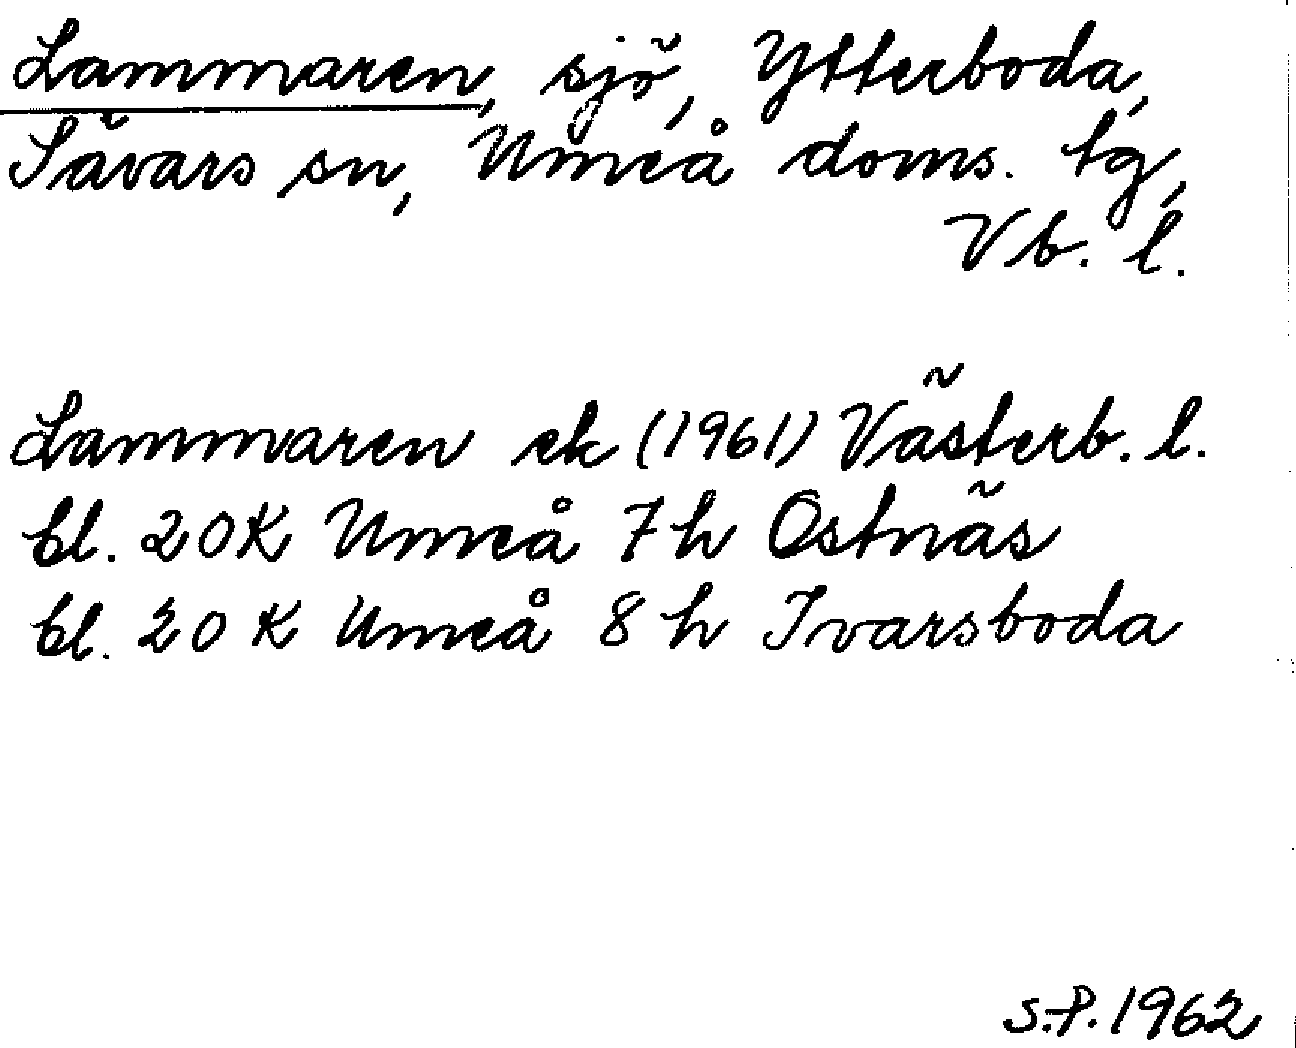 Lammaren, sjö, Ytterboda,
Sävars sn, Umeå doms. tg,
Vb. l.
Lammaren ek (1961) Västerb. l.
bl. 20K Umeå 7h Ostnäs
bl. 20K Umeå 8h Ivarsboda
S.P. 1962